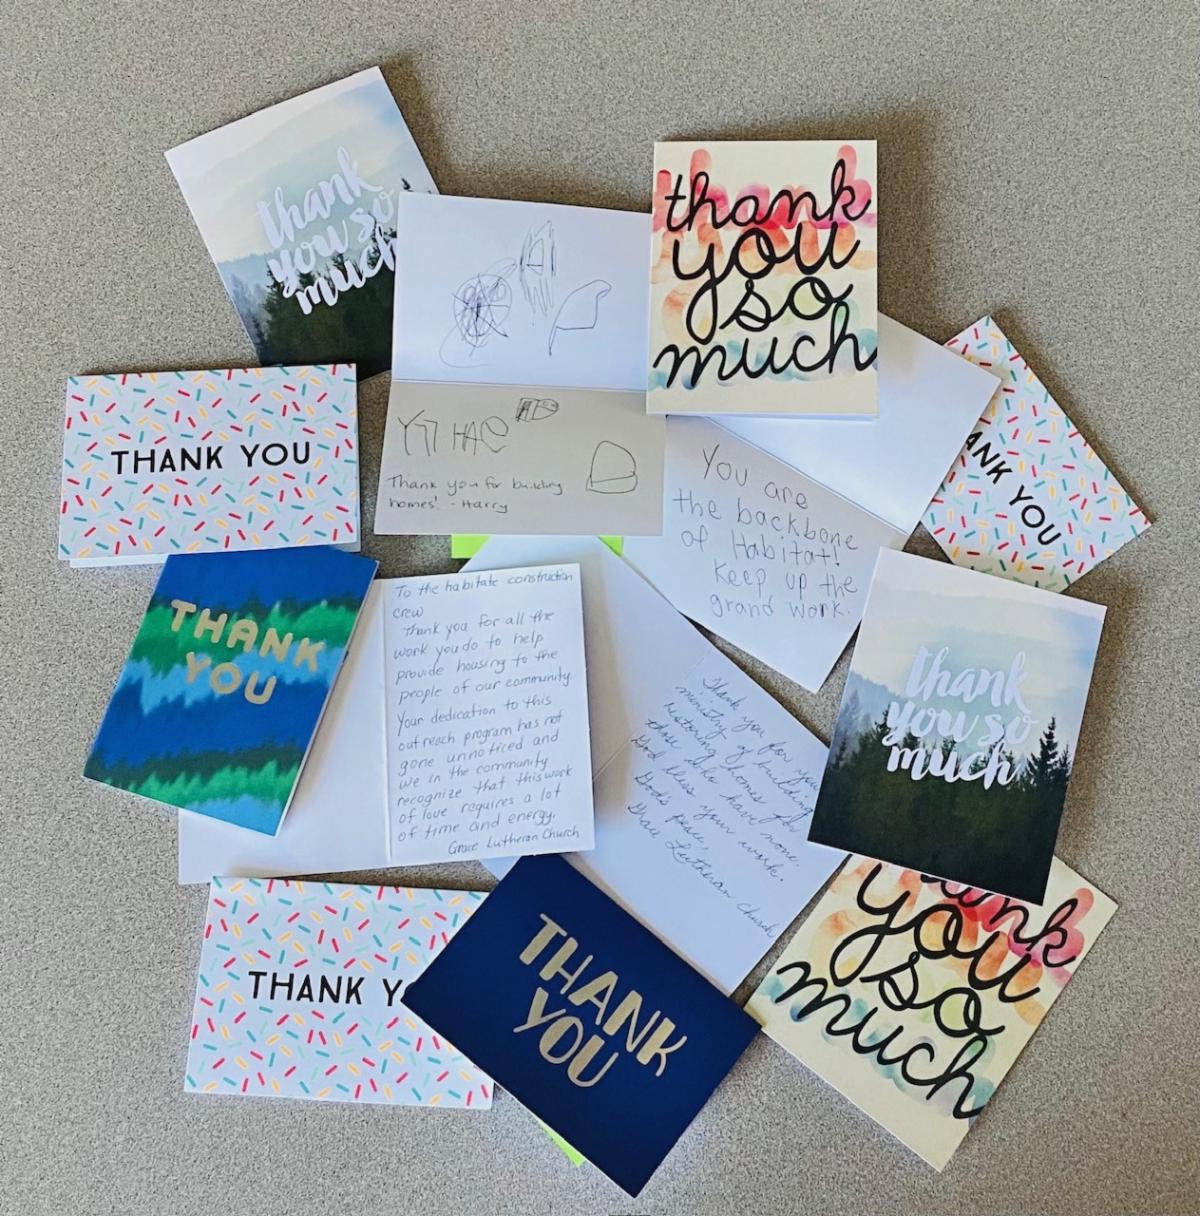 thank
you so
much
thank
you
so
much
THANK YOU
Thank you for building
homes! - Harry
ANK YOU
You are
the backbone
of Habitat!
Keep up the
grand work.
THANK
YOU
To the habitate construction
crew
Thank you for all the
work you do to help
provide housing to the
people of our community.
Your dedication to this
outreach program has not
gone unnoticed and
we in the community
recognize that this work
of love requires a lot
of time and energy.
Grace Lutheran Church
Thank you for your
ministry of building,
restoring homes for
those who have none.
God bless your work.
God's peace,
Grace Lutheran Church
thank
you so
much
THANK YO
THANK
YOU
ank
you
so
much